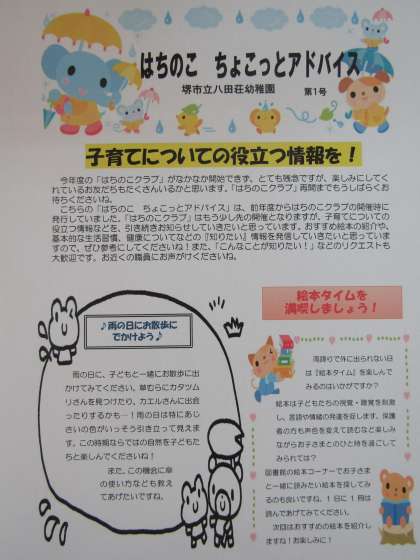 はちのこ ちょこっとアドバイス
堺市立八田荘幼稚園 第1号
子育てについての役立つ情報を！
今年度の「はちのこクラブ」がなかなか開始できず、とても残念ですが、楽しみにしてく
れているお友だちもたくさんいるかと思います。「はちのこクラブ」再開までもうしばらくお
待ちくださいね。
こちらの『はちのこ ちょこっとアドバイス』は、前年度からはちのこクラブの開催時に
発行していました。「はちのこクラブ」はもう少し先の開催となりますが、子育てについての
役立つ情報などを、引き続きお知らせしていきたいと思っています。おすすめ絵本の紹介や、
基本的な生活習慣、健康についてなどの『知りたい』情報を発信していきたいと思っていま
すので、ぜひ参考にしてくださいね！また、「こんなことが知りたい！」などのリクエストも
大歓迎です。お近くの職員にお声がけくださいね。
♪雨の日にお散歩に
でかけよう♪
雨の日に、子どもと一緒にお散歩に出
かけてみてください。草むらにカタツム
リさんを見つけたり、カエルさんに出会
ったりするかも…！雨の日は特にあじ
さいの色がいっそう引き立って見えま
す。この時期ならではの自然を子どもた
ちと楽しんでくださいね！
また、この機会に傘
の使い方なども教え
てあげたいですね。
絵本タイムを
満喫しましょう！
雨降りで外に出られない日
は『絵本タイム』を楽しんで
みるのはいかがですか？
絵本は子どもたちの視覚・聴覚を刺激
し、言語や情緒の発達を促します。保護
者の方も声色を変えて読むなど楽しみ
ながらお子さまとのひと時を過ごして
みられては？
図書館の絵本コーナーでお子さま
と一緒に読みたい絵本を探してみ
るのも良いですね。1日に1冊は
読んであげてみてください。
次回はおすすめの絵本を紹介し
ますね！お楽しみに！